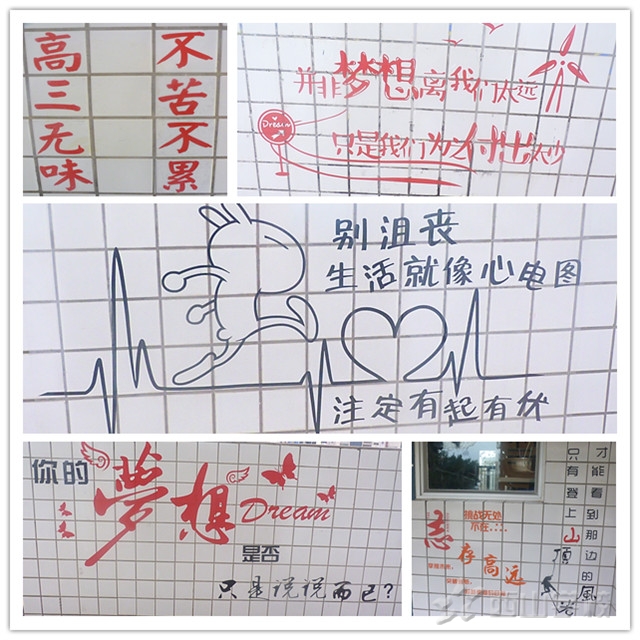 不苦不累
高三无味
并非梦想离我们太远
Dream
只是我们为之付出太少
别沮丧
生活就像心电图
注定有起有伏
你的
夢想
Dream
是否
只是说说而已?
挑战无处
不在
志
存高远
只有登上山顶
才能看到那边的風光